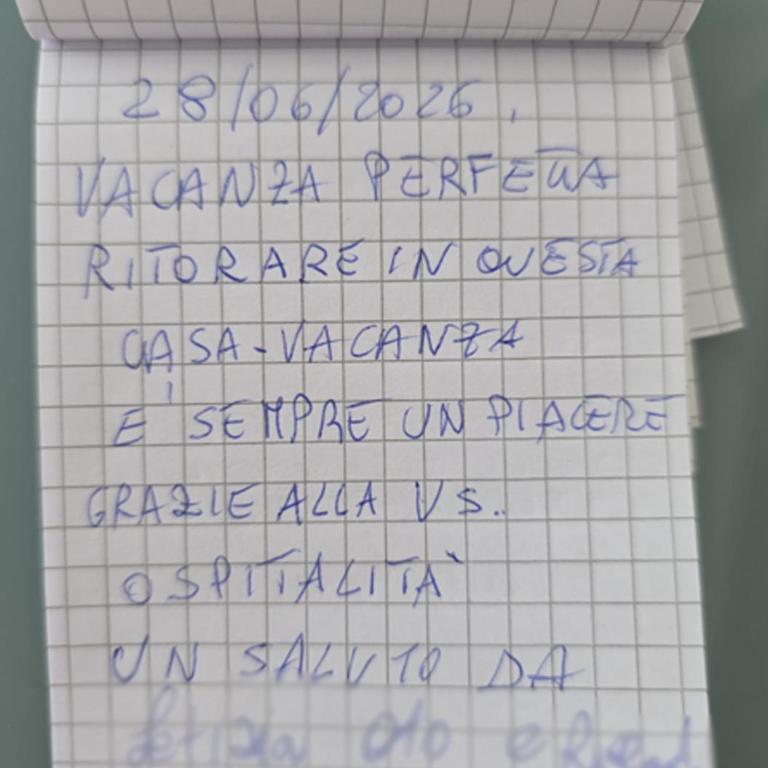 28/06/2026.
VACANZA PERFETTA
RITORARE IN QUESTA
CASA-VACANZA
E' SEMPRE UN PIACERE
GRAZIE ALLA VS..
OSPITALITÀ
UN SALUTO DA
Letizia